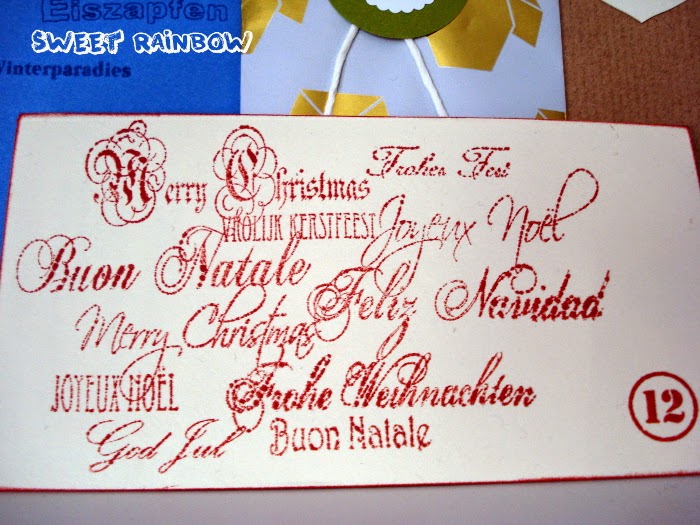 Eiszapfen
SWEET RAINBOW
Winterparadies
Merry Christmas
Frohes Fest
VROLIJK KERSTFEEST
Joyeux Noël
Buon Natale
Feliz Navidad
Merry Christmas
JOYEUX NOËL
Frohe Weihnachten
12
God Jul
Buon Natale